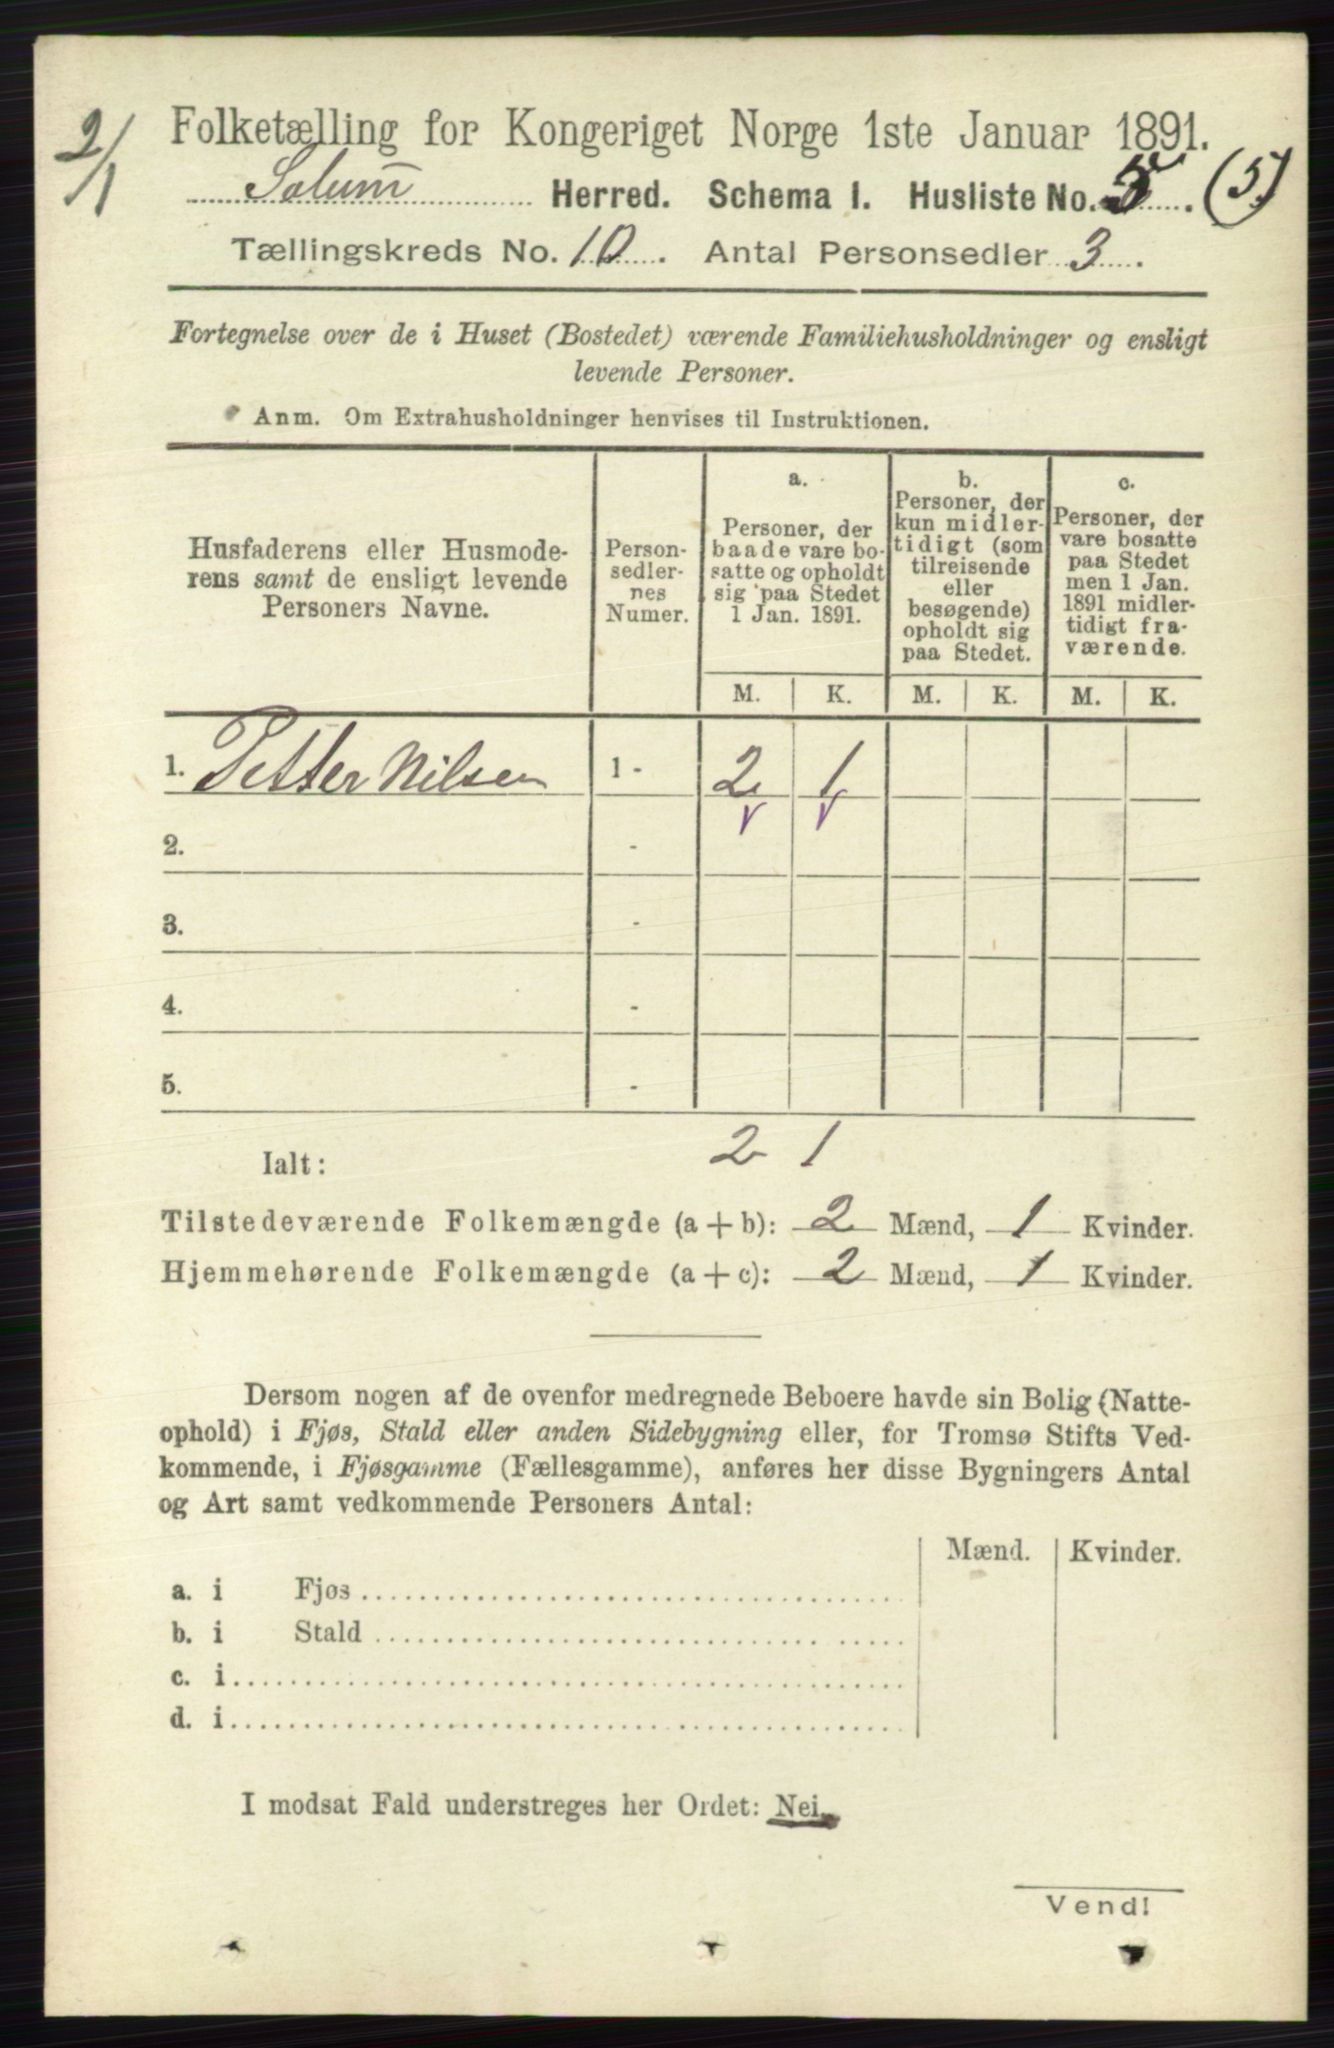 2/1
Folketælling for Kongeriget Norge 1ste Januar 1891.
Solum Herred. Schema I. Husliste No. 5. (5.)
Tællingskreds No. 10. Antal Personsedler 3.
Fortegnelse over de i Huset (Bostedet) værende Familiehusholdninger og ensligt
levende Personer.
Anm. Om Extrahusholdninger henvises til Instruktionen.
Husfaderens eller Husmode-
rens samt de ensligt levende
Personers Navne.
Person-
sedler-
nes
Numer.
a.
Personer, der
baade vare bo-
satte og opholdt
sig paa Stedet
1 Jan. 1891.
b.
Personer, der
kun midler-
tidigt (som
tilreisende
eller
besøgende)
opholdt sig
paa Stedet.
c.
Personer, der
vare bosatte
paa Stedet
men 1 Jan.
1891 midler-
tidigt fra-
værende.
M. K. M. K. M. K.
1. Petter Nilsen 1 - 2 1
2. -
3. -
4. -
5. -
Ialt: 2 1
Tilstedeværende Folkemængde (a + b): 2 Mænd, 1 Kvinder.
Hjemmehørende Folkemængde (a + c): 2 Mænd, 1 Kvinder.
Dersom nogen af de ovenfor medregnede Beboere havde sin Bolig (Natte-
ophold) i Fjøs, Stald eller anden Sidebygning eller, for Tromsø Stifts Ved-
kommende, i Fjøsgamme (Fællesgamme), anføres her disse Bygningers Antal
og Art samt vedkommende Personers Antal:
Mænd. Kvinder.
a. i Fjøs
b. i Stald
c. i
d. i
I modsat Fald understreges her Ordet: Nei.
Vend!